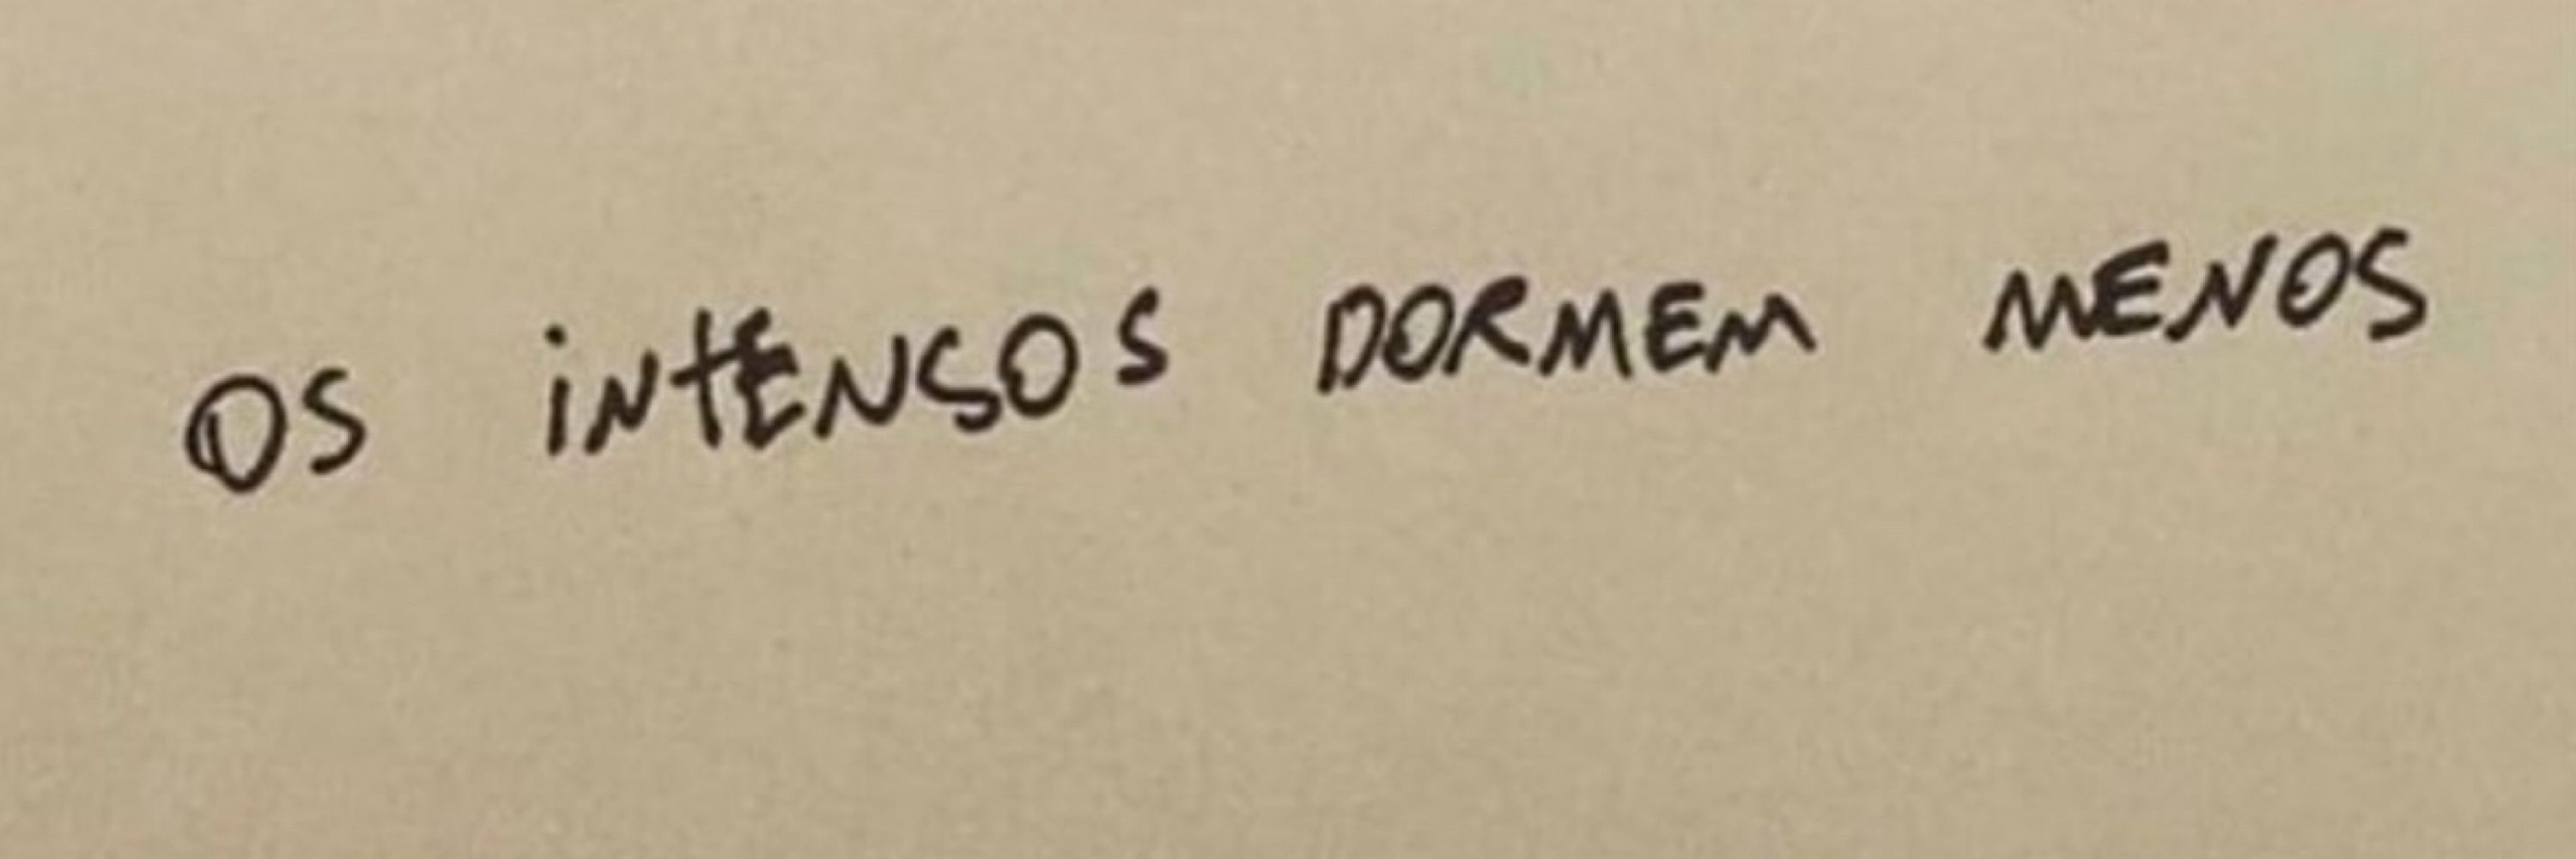 OS iNTENSOS DORMEM MENOS